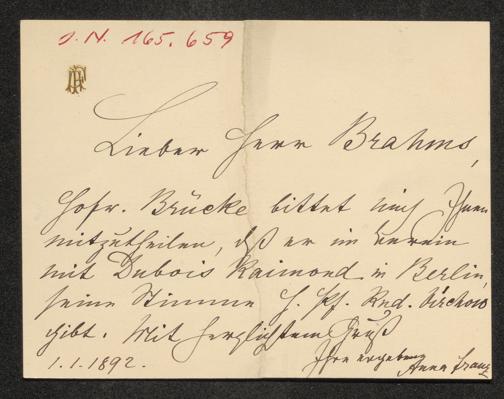 I. N. 165.659
AF
Lieber Herr Brahms,
Hofr. Brücke bittet mich Ihnen
mitzutheilen, daß er im Verein
mit Dubois Raimond in Berlin,
seine Stimme f. Pf. Rud. Virchow
gibt. Mit herzlichstem Gruß
Ihre ergebene
1.1.1892. Anna Franz